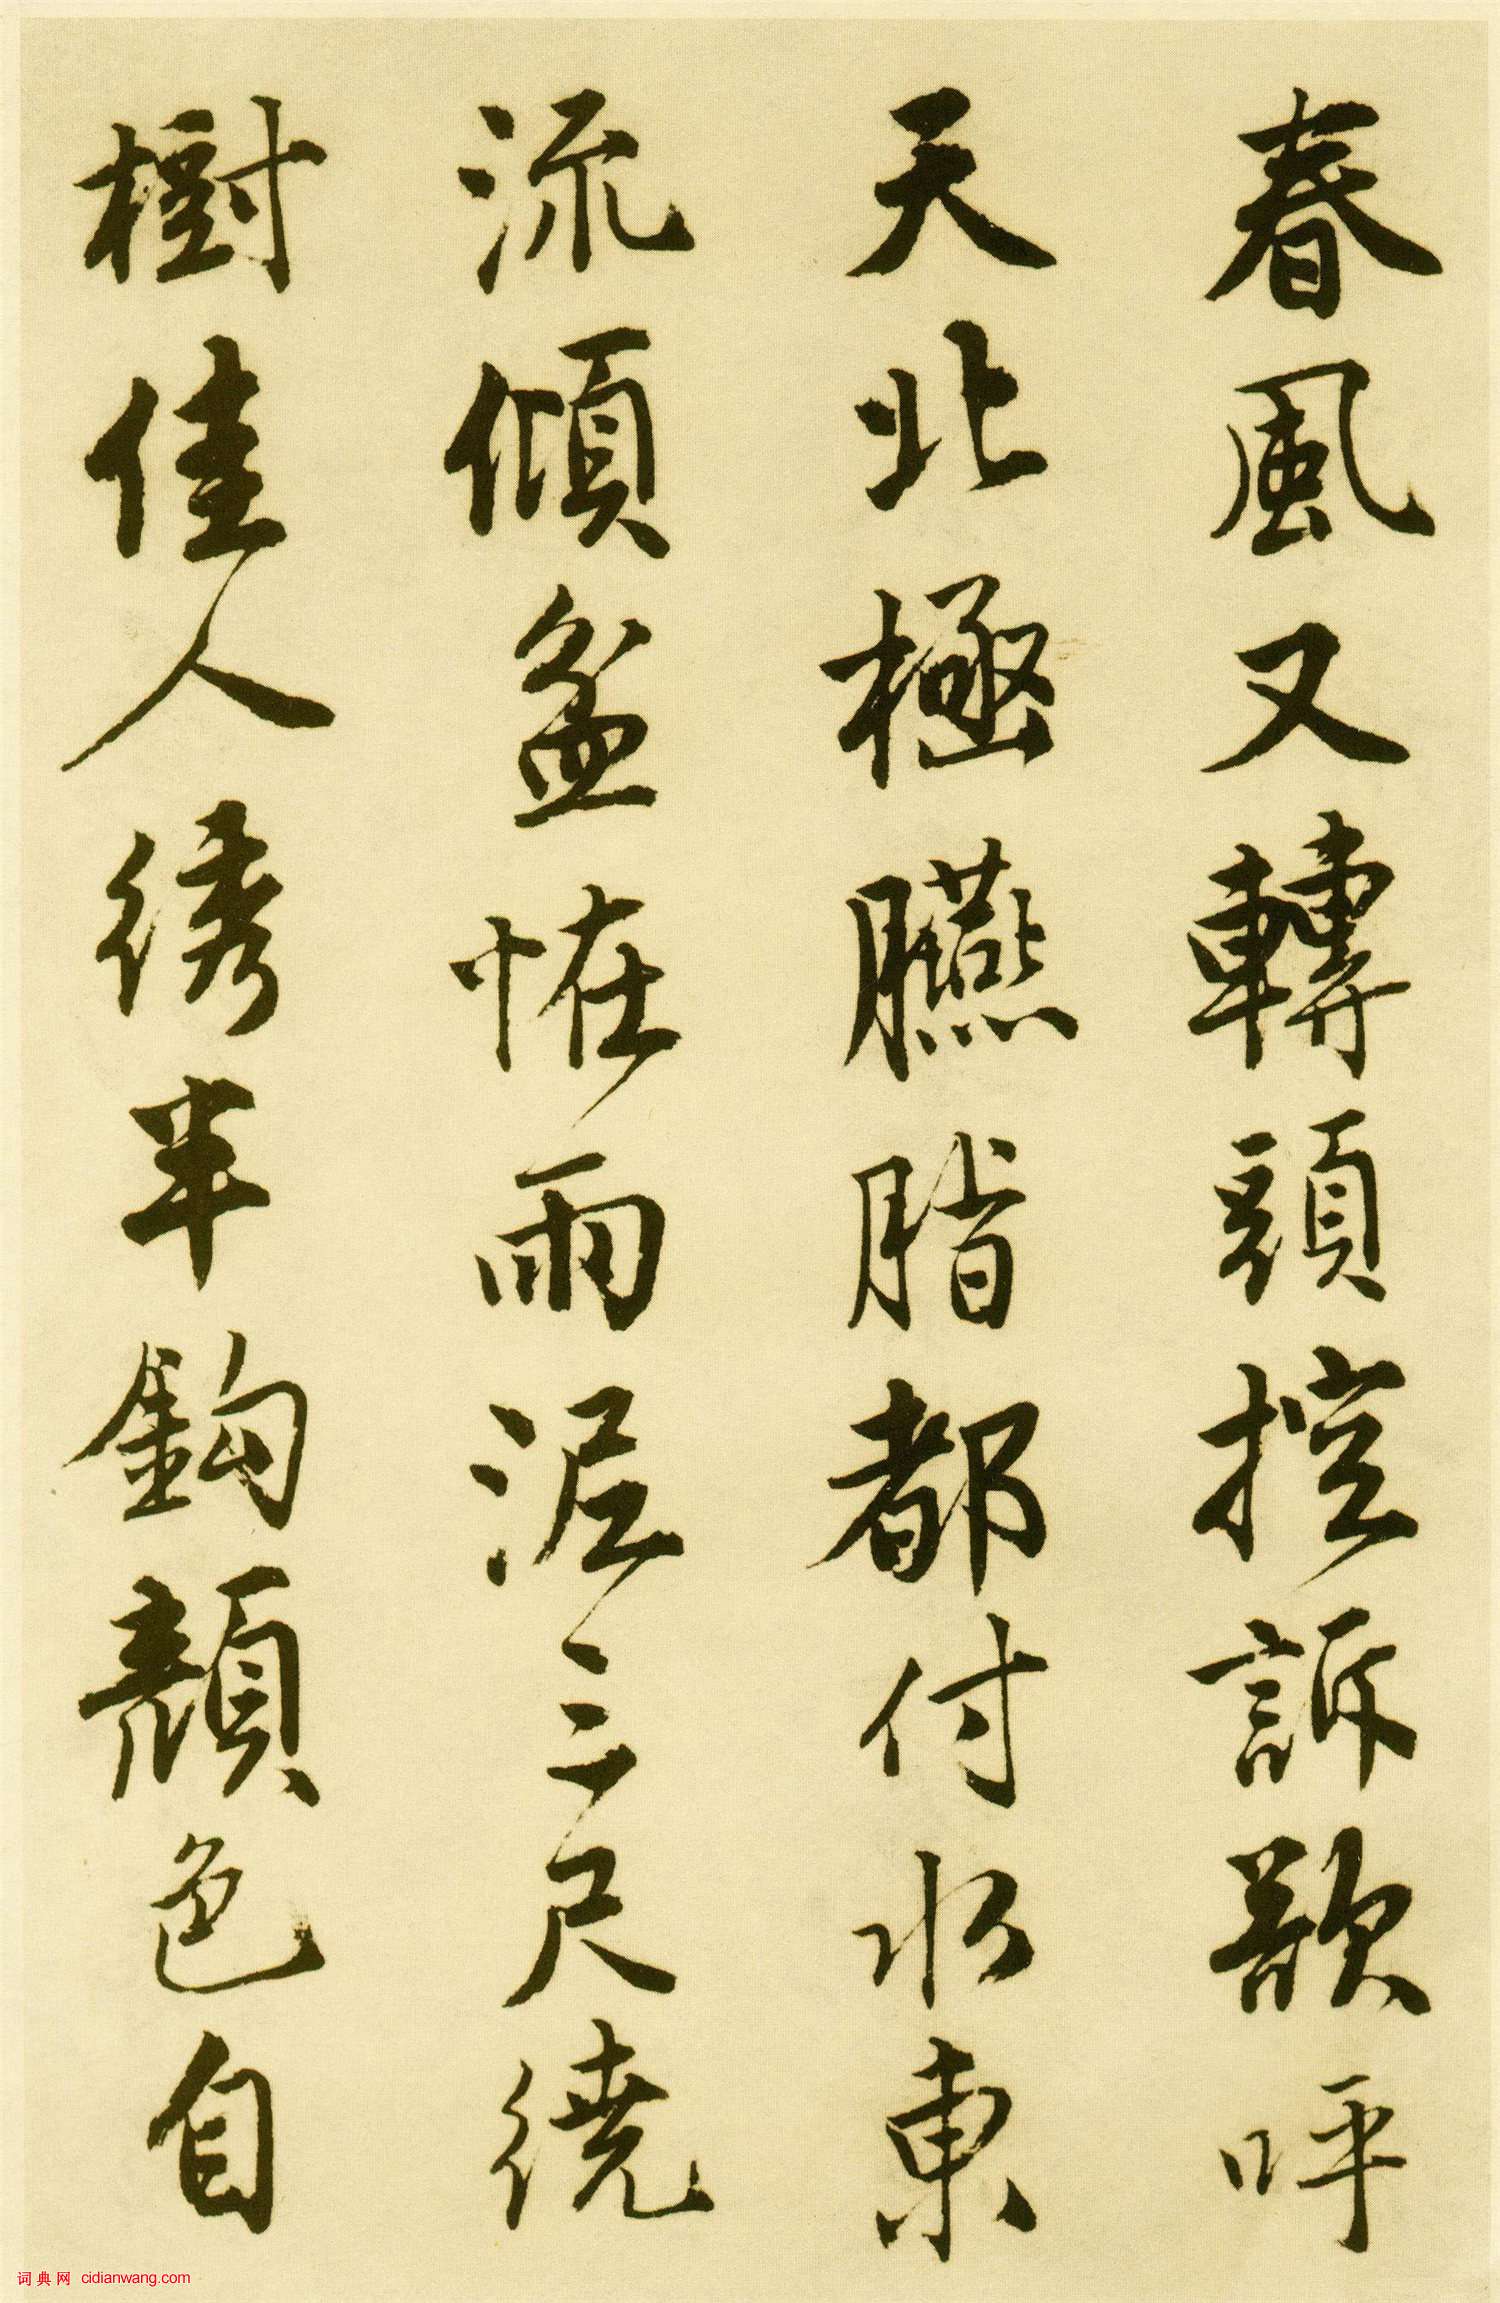 春風又轉頭控訴欲呼
天北極臙脂都付水東
流傾盆恠雨泥三尺繞
樹佳人綉半鈎顏色自
词典网 cidianwang.com